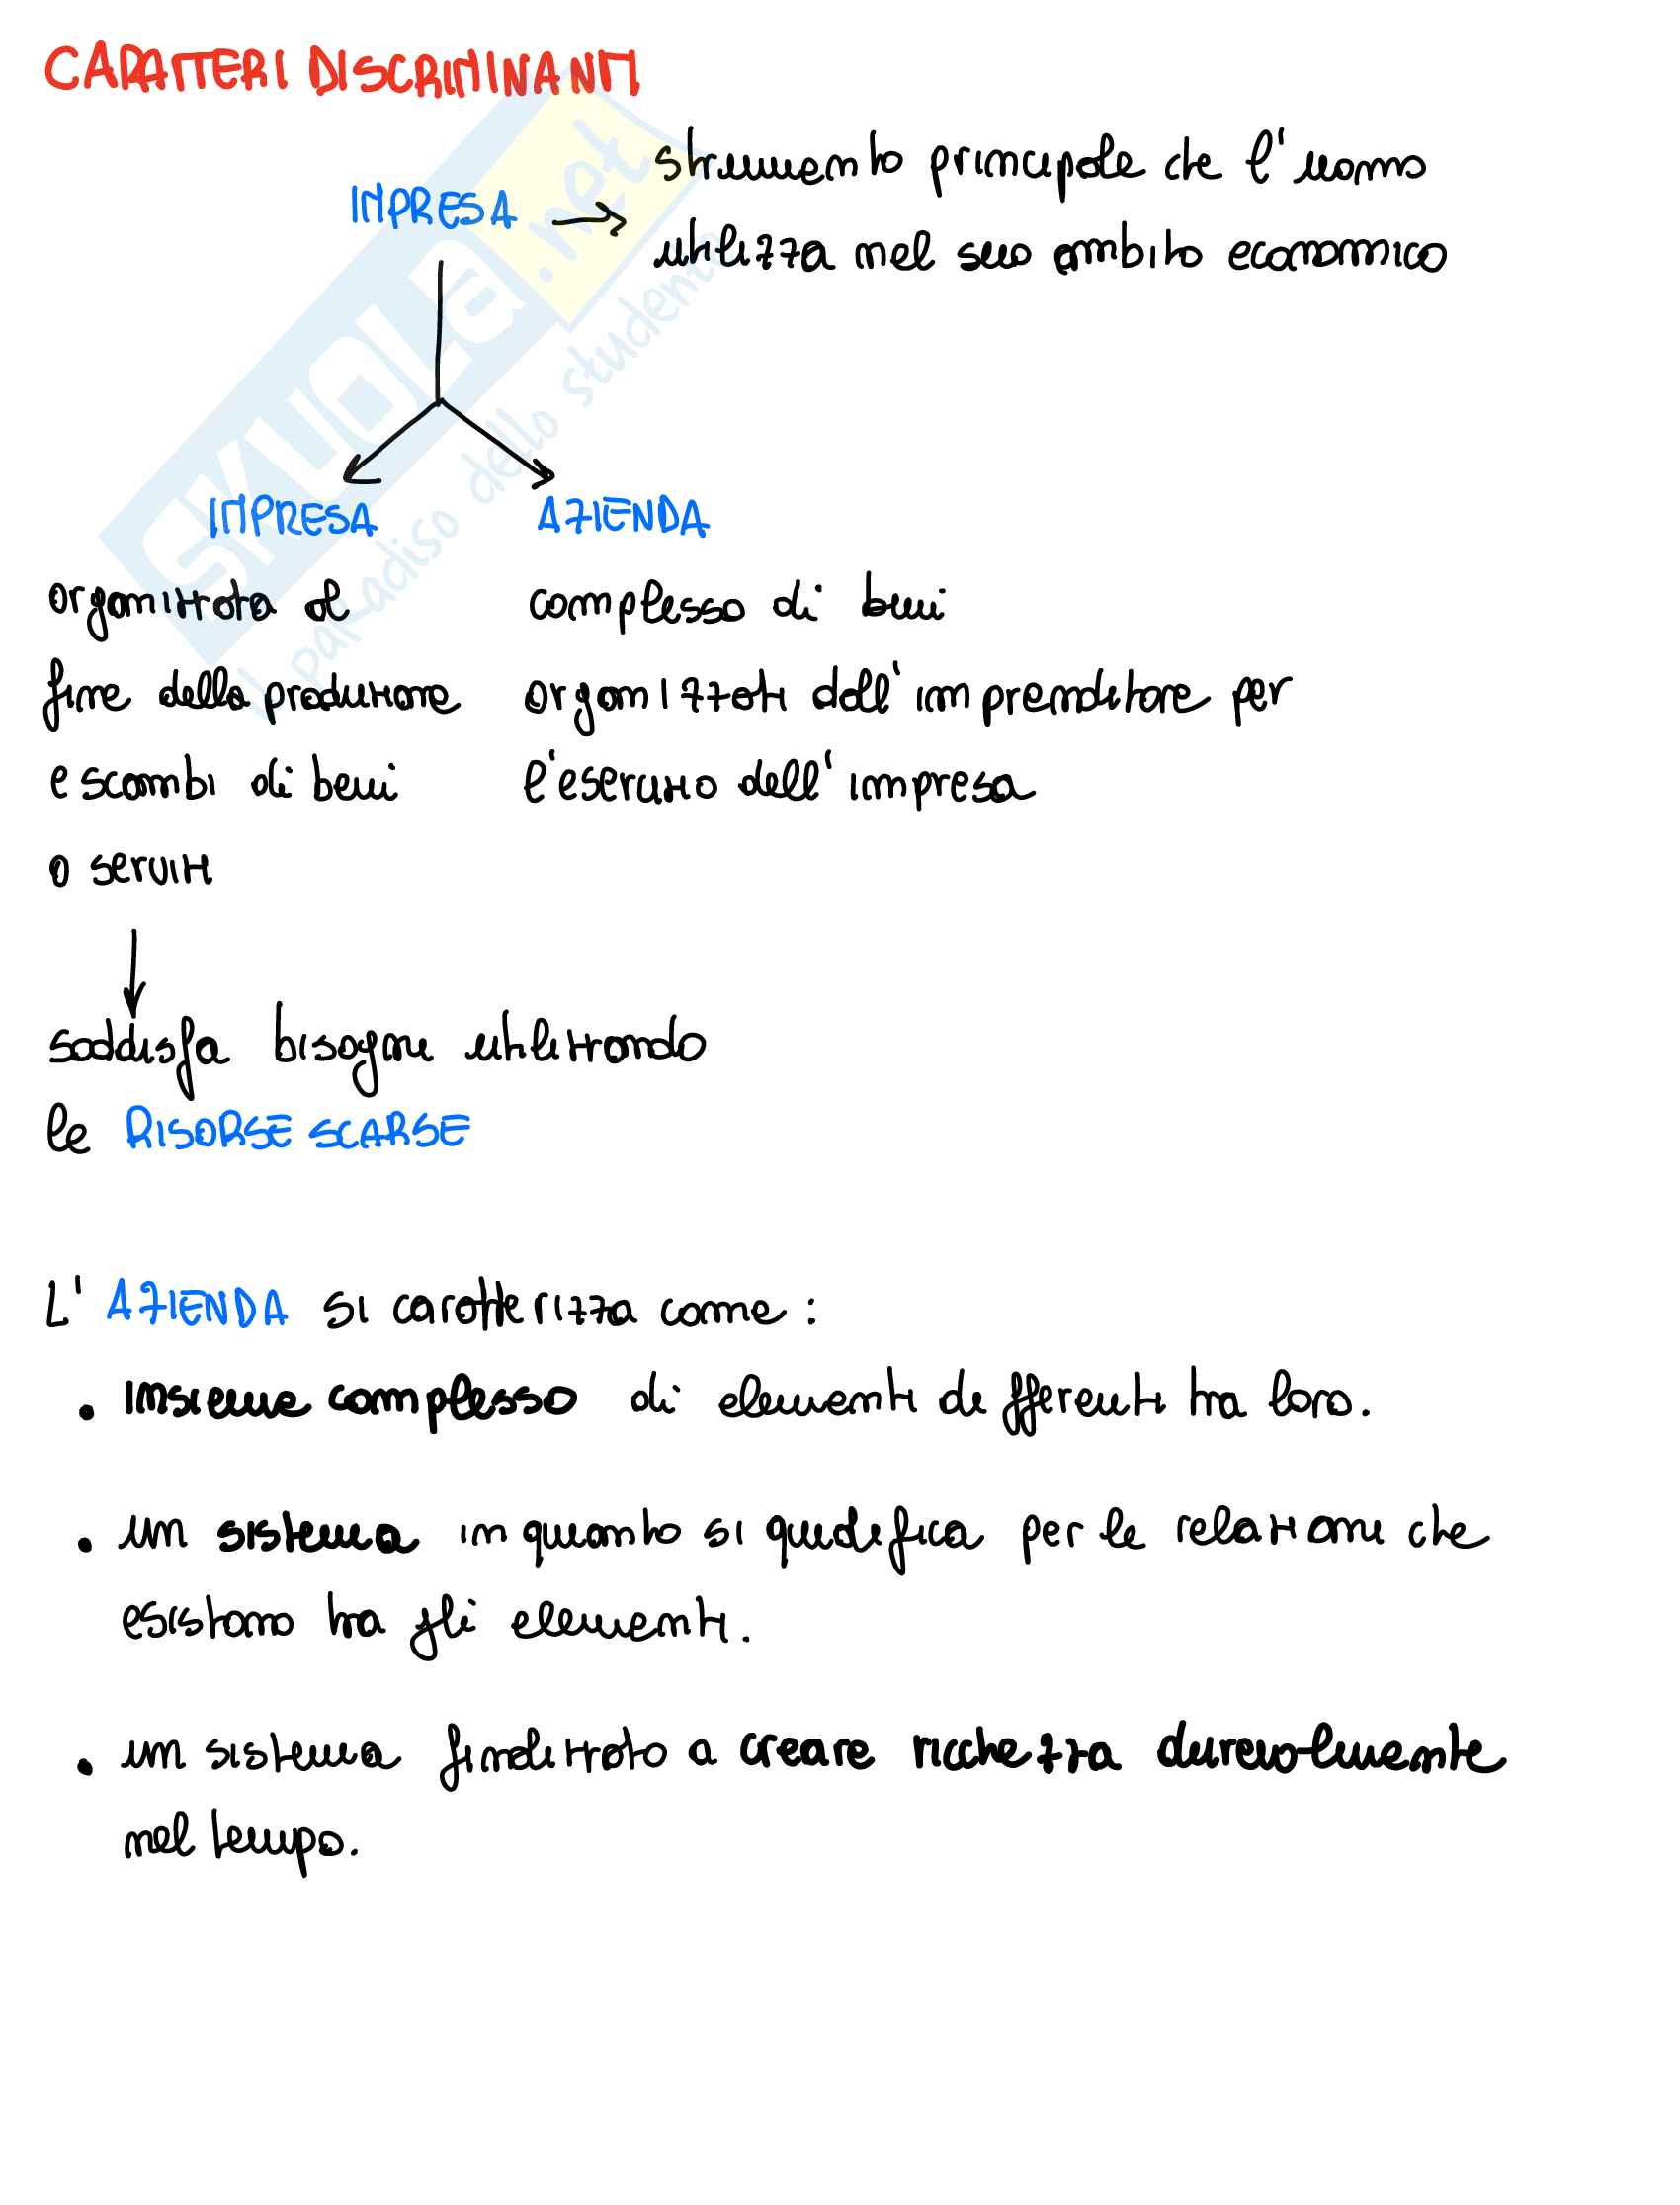 CARATTERI DISCRIMINANTI
IMPRESA → strumento principale che l'uomo
utilizza nel suo ambito economico
IMPRESA AZIENDA
organizzata al
fine della produzione
e scambi di beni
o servizi
complesso di beni
organizzati dall'imprenditore per
l'esercizio dell'impresa
soddisfa bisogni utilizzando
le RISORSE SCARSE
L'AZIENDA si caratterizza come:
• insieme complesso di elementi differenti tra loro.
• un sistema in quanto si qualifica per le relazioni che
esistono tra gli elementi.
• un sistema finalizzato a creare ricchezza durevolmente
nel tempo.
SKUOLA.net
il paradiso dello studente